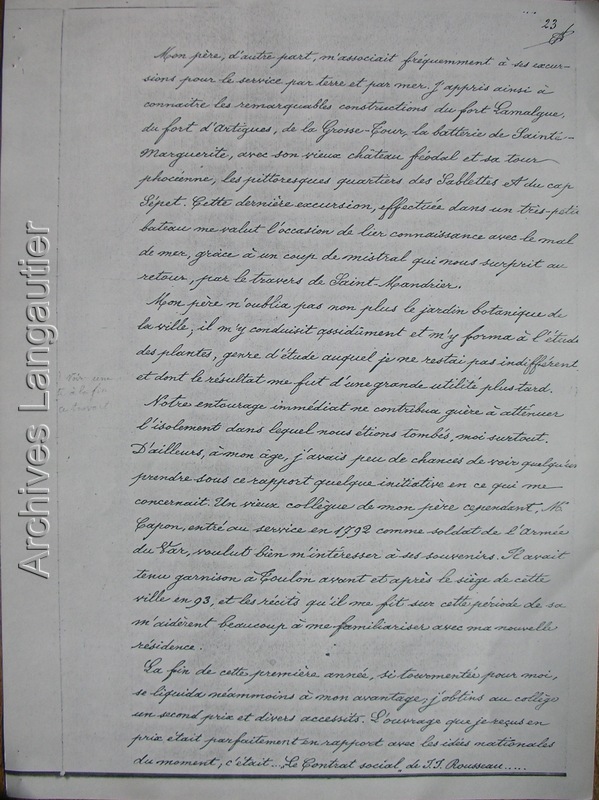 23
Mon père, d'autre part, m'associait fréquemment à ses excur-
sions pour le service par terre et par mer. J'appris ainsi à
connaître les remarquables constructions du fort Lamalgue,
du fort d'Artigues, de la Grosse-Tour, la batterie de Sainte-
Marguerite, avec son vieux château féodal et sa tour
phocéenne, les pittoresques quartiers des Sablettes et du cap
Sépet. Cette dernière excursion, effectuée dans un très-petit
bateau me valut l'occasion de lier connaissance avec le mal
de mer, grâce à un coup de mistral qui nous surprit au
retour, par le travers de Saint-Mandrier.
Mon père n'oublia pas non plus le jardin botanique de
la ville; il m'y conduisit assidûment et m'y forma à l'étude
des plantes, genre d'étude auquel je ne restai pas indifférent
et dont le résultat me fut d'une grande utilité plus tard.
Notre entourage immédiat ne contribua guère à atténuer
l'isolement dans lequel nous étions tombés, moi surtout.
D'ailleurs, à mon âge, j'avais peu de chances de voir quelqu'un
prendre sous ce rapport quelque initiative en ce qui me
concernait. Un vieux collègue de mon père cependant, M.
Capon, entré au service en 1792 comme soldat de l'Armée
du Var, voulut bien m'intéresser à ses souvenirs. Il avait
tenu garnison à Toulon avant et après le siège de cette
ville en 93, et les récits qu'il me fit sur cette période de sa
m'aidèrent beaucoup à me familiariser avec ma nouvelle
résidence.
La fin de cette première année, si tourmentée pour moi,
se liquida néammoins à mon avantage; j'obtins au collège
un second prix et divers accessits. L'ouvrage que je reçus en
prix était parfaitement en rapport avec les idées nationales
du moment, c'était... Le Contrat social, de J.J. Rousseau.....
Archives Langautier